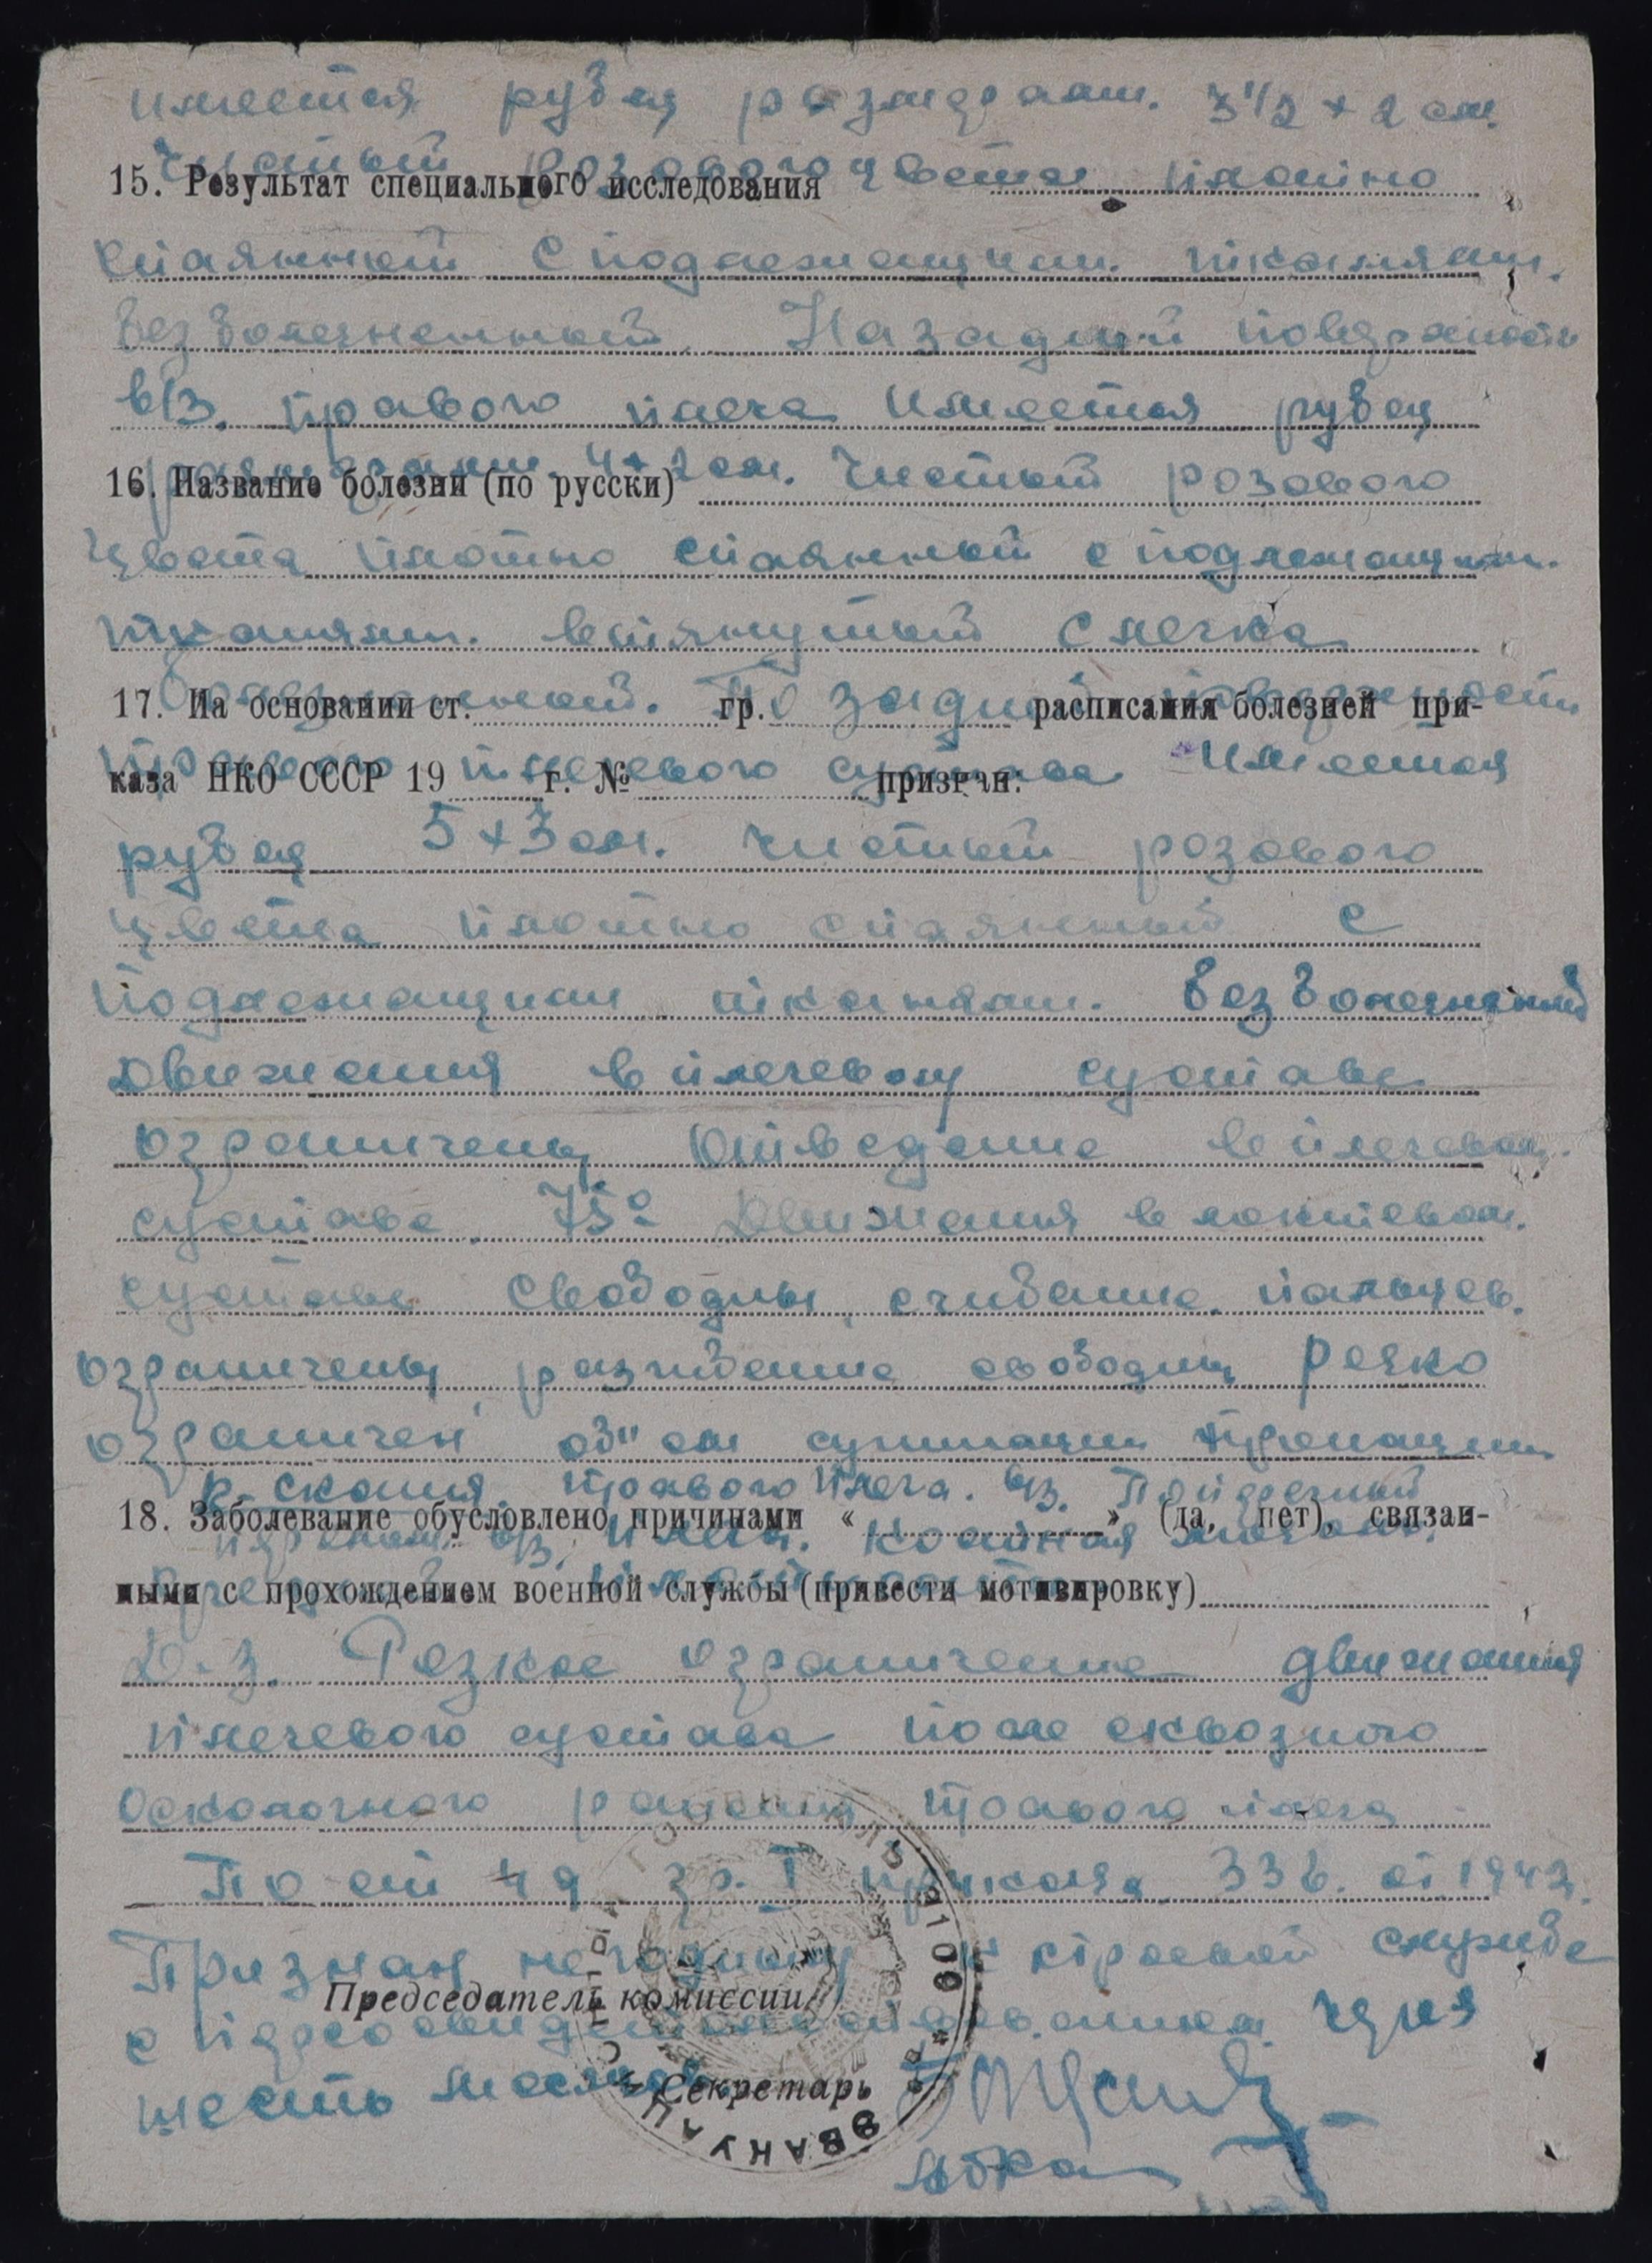 имеется рубец размерам. 3 1/2 + 2 см.
чистый розового цвета плотно
15. Результат специального исследования
спаянный с подлежащим. тканями.
безболезненный На задний поверхности
в/3. правого плеча имеется рубец
размерами 4 + 2 см. Чистый розового
16. Название болезни (по русски)
цвета плотно спаянный с подлежащим.
тканями. втянутый слегка
болезненный. По задний поверхности
17. На основании ст. гр. расписания болезней при-
правого плечевого сустава имеется
каза НКО СССР 19 г. № признан:
рубец 5 + 3 см. чистый розового
цвета плотно спаянный с
подлежащим тканями. безболезненный
Движения в плечевом суставе
ограничены Отведение в плечевом.
суставе 75° Движения в локтевом.
суставе свободны, сгибание пальцев.
ограничены, разгибание свободны Резко
ограничен об"ем супинации пронации
Р-скопия правого плеча. в/з. Поперечный
18. Заболевание обусловлено причинами « » (да, нет), связан-
перелом в/з. плеча. Костная мозоль.
ными с прохождением военной службы (привести мотивировку)
Д-з. Резкое ограничение движения
плечевого сустава после сквозного
осколочного ранения правого плеча
По ст 49 гр. I приказа 336. от 1942.
Признан не годным к строевой службе
Председатель комиссии
с переосвидетельствованием через
шесть месяцев
Секретарь
ЭВАКУАЦ ГОСПИТАЛЬ 3108